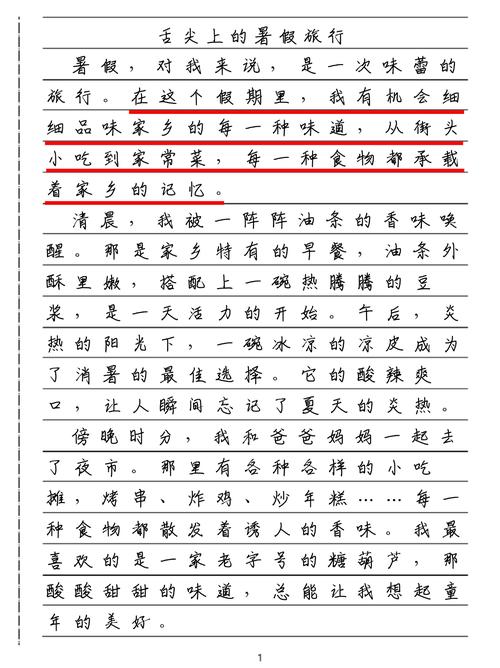 舌尖上的暑假旅行
暑假，对我来说，是一次味蕾的
旅行。在这个假期里，我有机会细
细品味家乡的每一种味道，从街头
小吃到家常菜，每一种食物都承载
着家乡的记忆。
清晨，我被一阵阵油条的香味唤
醒。那是家乡特有的早餐，油条外
酥里嫩，搭配上一碗热腾腾的豆
浆，是一天活力的开始。午后，炎
热的阳光下，一碗冰凉的凉皮成为
了消暑的最佳选择。它的酸辣爽
口，让人瞬间忘记了夏天的炎热。
傍晚时分，我和爸爸妈妈一起去
了夜市。那里有各种各样的小吃
摊，烤串、炸鸡、炒年糕……每一
种食物都散发着诱人的香味。我最
喜欢的是一家老字号的糖葫芦，那
酸酸甜甜的味道，总能让我想起童
年的美好。
1